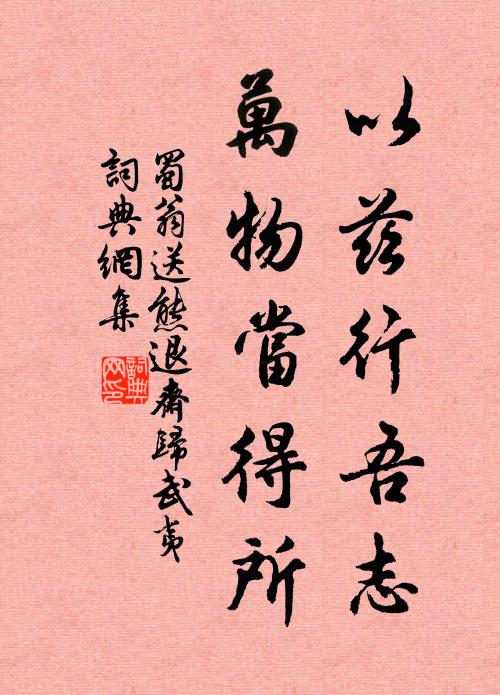 以茲行吾志
萬物當得所
蜀翁送熊退齋歸武夷
詞典網集
詞典網印